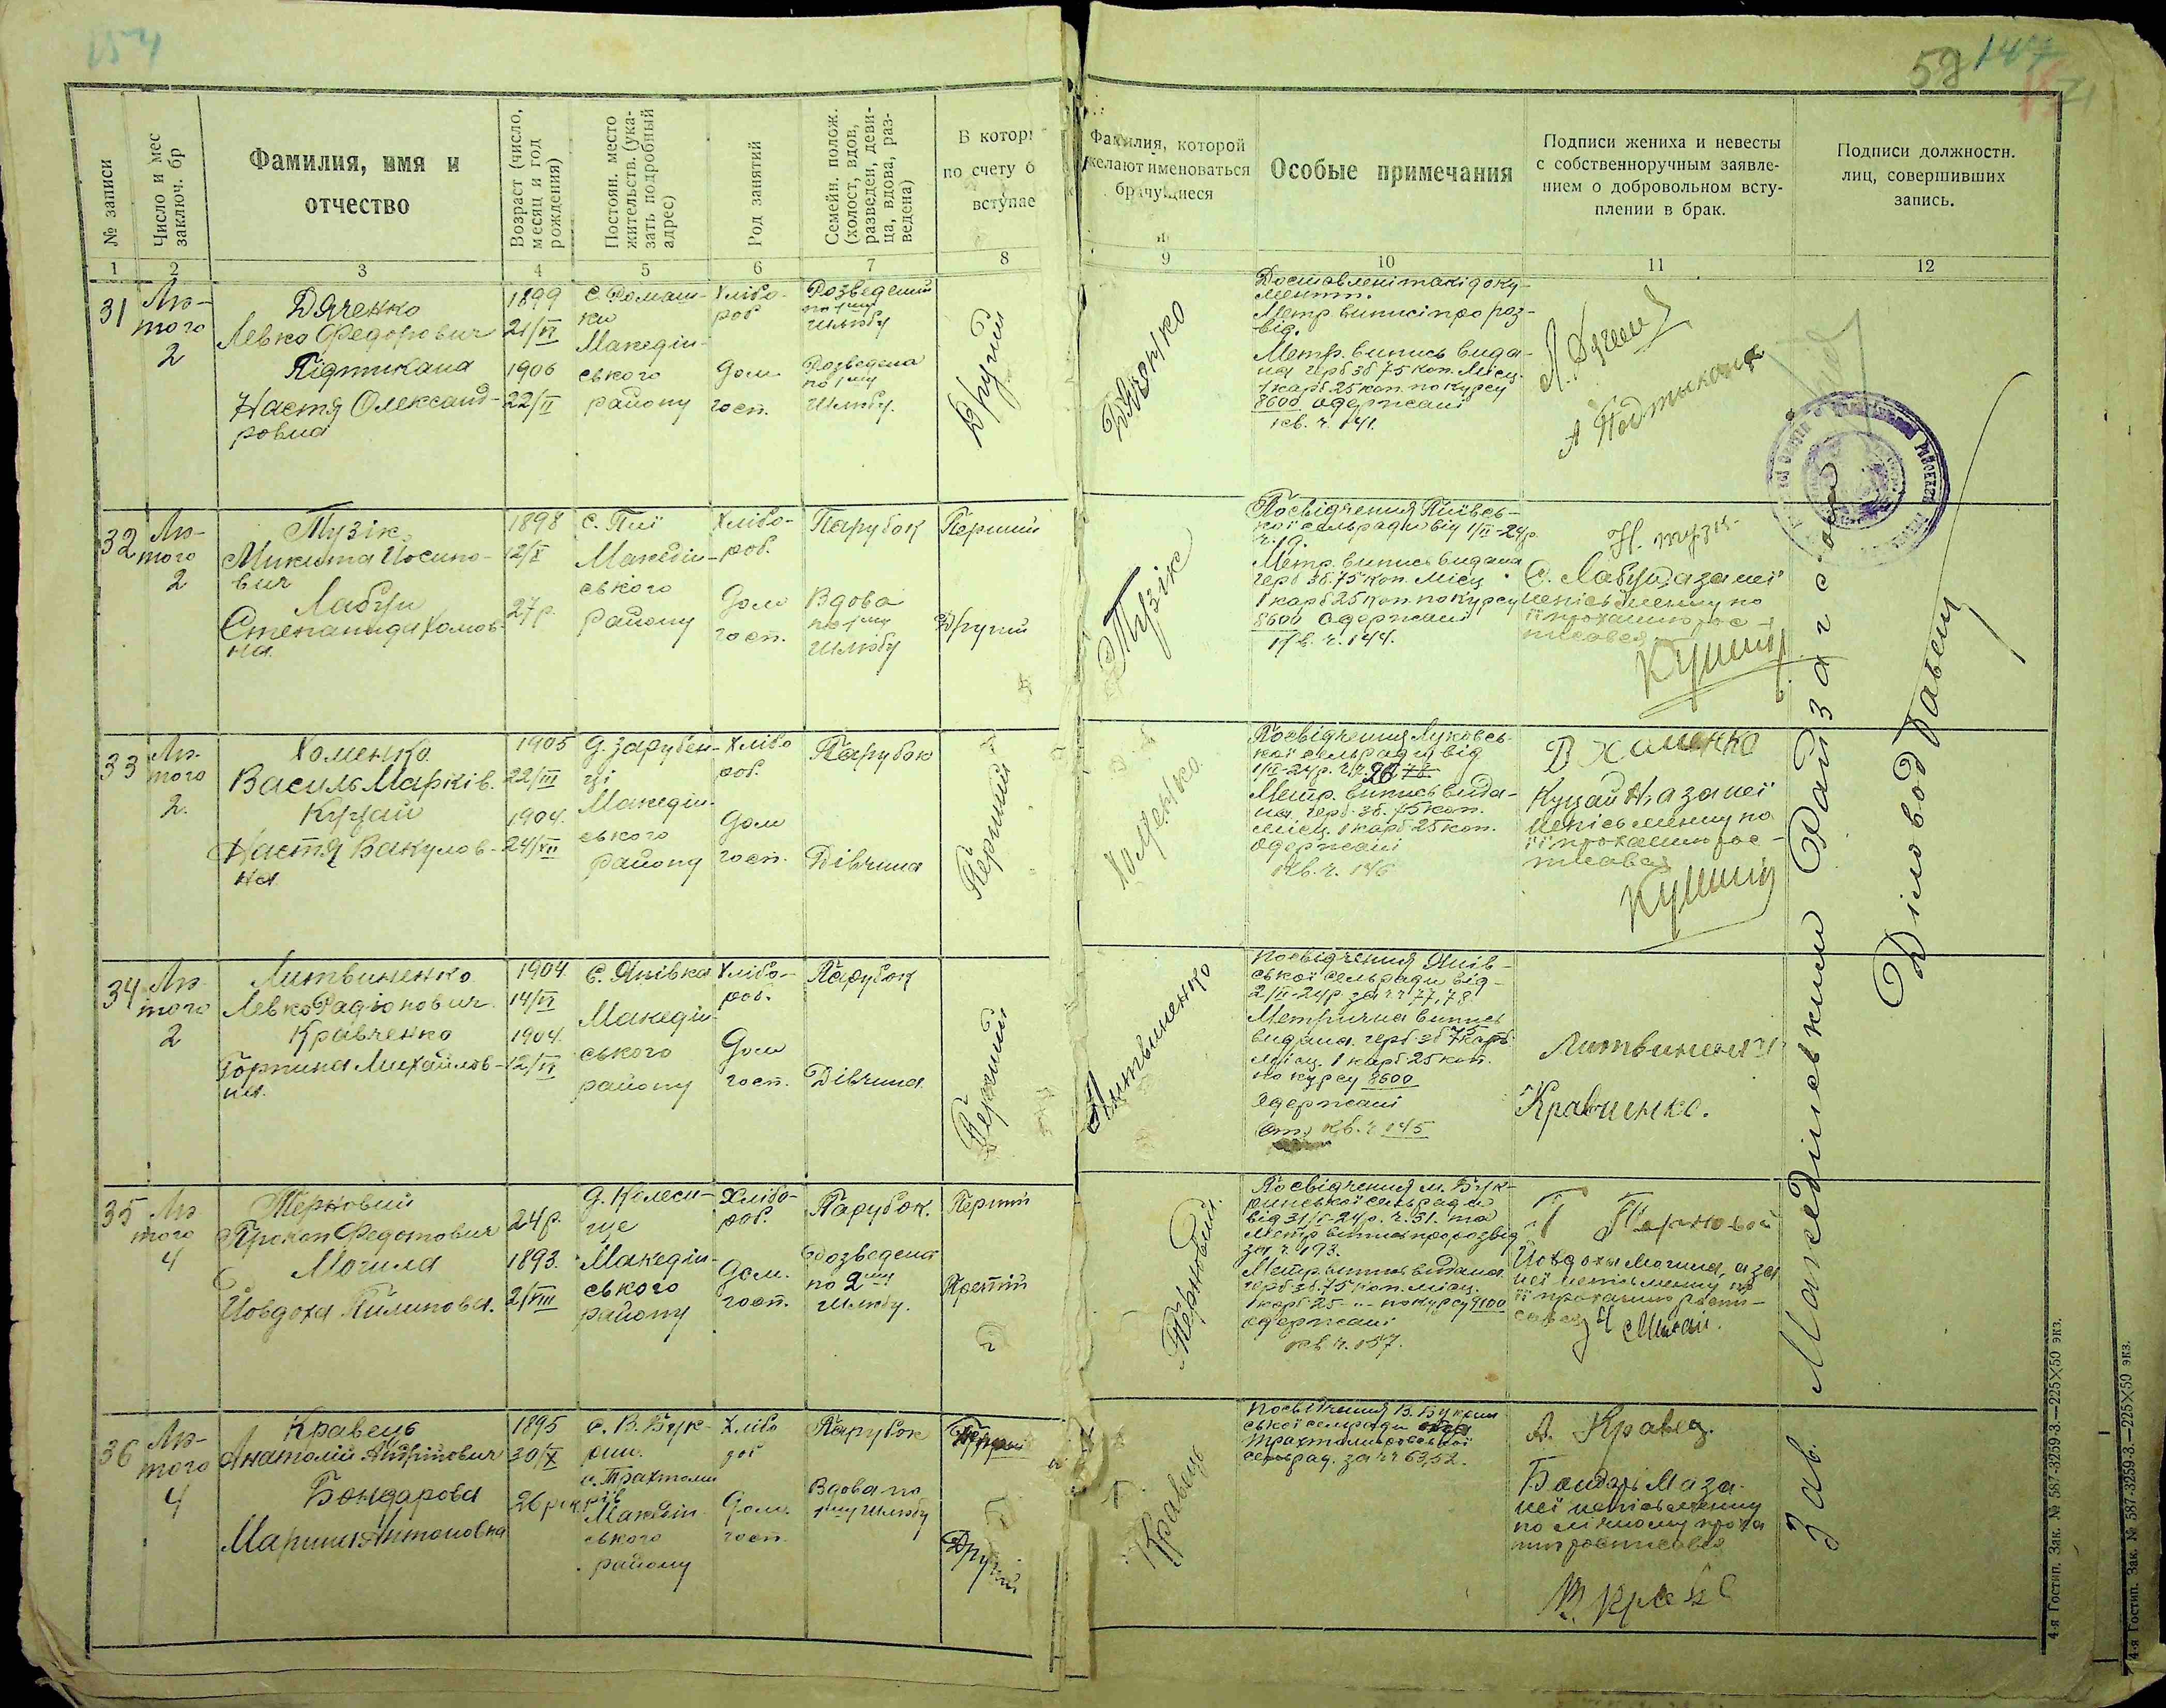 154
59 147
№ записи
Число и мес
заключ. бр
Фамилия, имя и
отчество
Возраст (число,
месяц и год
рождения)
Постоян. место
жительств. (ука-
зать подробный
адрес)
Род занятий
Семейн. полож.
(холост, вдов,
разведен, деви-
ца, вдова, раз-
ведена)
В котор
по счету б
вступае
Фамилия, которой
желают именоваться
брачущиеся
Особые примечания
Подписи жениха и невесты
с собственноручным заявле-
нием о добровольном всту-
плении в брак.
Подписи должностн.
лиц, совершивших
запись.
1 2 3 4 5 6 7 8 9 10 11 12
31
Лю-
того
2
Дяченко
Левко Федорович
Підтикана
Настя Олександ-
ровна
1899
21/VI
1906
22/II
с. Ромаш-
ки
Македін-
ського
району
Хлібо-
роб
Дом.
госп.
Розведений
по 1му
шлюбу
Розведена
по 1му
шлюбу.
Другий
Дяченко
Доставлені такі доку-
менти.
Метр виписі про роз-
від.
Метр. випись вида-
на герб зб 75 коп. Місц.
1 карб 25 коп. по курсу
8600 одержані
кв. ч. 141.
Л. Дяченко
А Подтыкана
32
Лю-
того
2
Тузік
Микита Йосипо-
вич
Лабун
Степанида Хомов-
на.
1898
12/X
27 р.
с. Пії
Македін-
ського
району
Хлібо-
роб.
Дом
госп.
Парубок
Вдова
по 1му
шлюбу
Перший
Другий
Тузік
Посвідчення Пиївсь-
кої сельради від 1/II-24р.
ч. 19.
Метр. випись видана
герб зб. 75 коп. Місц.
1 карб 25 коп. по курсу
8600 одержані
кв. ч. 144.
Н. тузік
С. Лабун, а за неї
неписьменну по
її проханню рос-
писався
Кушнір
33
Лю-
того
2.
Хоменко
Василь Марків.
Куцай
Настя Вакулов-
на
1905
22/III
1904.
24/XII
д. Зарубен-
ці
Македін-
ського
району
Хлібо
роб.
Дом
госп.
Парубок
Дівчина
Перший
Хоменко
Посвідчення Луковсь-
кої сельради від
1/II-24р.
Метр. випись вида-
на герб. зб. 75 коп.
місц. 1 карб 25 коп.
одержані
кв. ч. 146
В Хаменко
Куцай Н, а за неї
неписьменну по
її проханню рос-
писався
Кушнір
34
Лю-
того
2
Литвиненко
Левко Радіонович
Кравченко
Горпина Михайлов-
на.
1904.
14/VI
1904.
12/VI
с. Янівка
Македін-
ського
району
Хлібо-
роб.
Дом
госп.
Парубок
Дівчина
Перший
Литвиненко
Посвідчення Янів-
ської сельради від-
2/II-24р. за чч 77, 78
Метрична випись
видана. герб зб 75 карб
місц. 1 карб 25 коп.
по курсу 8600
Одержані
кв. ч. 145
Литвиненко
Кравченко.
35
Лю
того
4
Терновий
Прокоп Федотович
Могила
Йовдоха Пилиповна.
24 р.
1893.
2/VIII
д. Колеси-
ще
Македін-
ського
району
Хлібо-
роб.
Дом.
госп.
Парубок.
Розведена
по 2му
шлюбу.
Перший
Третій
Терновий
Посвідчення м. Бук-
ринської сельради
від 31/I-24р. ч. 31. та
метр випись про розвід
за ч. 193.
Метр. випись видана
герб зб. 75 коп. місц.
1 карб 25 -"- по курсу 9100
одержані
кв ч. 157.
П Терновой
Йовдоха Могила, а за
неї неписьменну по
її проханню роспи-
сався
36
Лю-
того
4
Кравець
Анатолій Андрійович
Бондарова
Марина Антоновна
1895
30/X
26 рок
с. В. Бук-
рин.
с. Трахтеми
рів
Македін
ського
району
Хлібо
роб
Дом.
госп.
Парубок
Вдова по
1му шлюбу
Перший
Другий
Кравець
Посвідчення В. Букрин
ської сельради
Трахтемирівської
сельрад. за чч 63, 52.
А. Кравец.
Бондарь М а за
неї неписьменну
по лічному проха
нню росписався
Зав. Македінським Райзагсом
Діловод
4-я Гостип. Зак. № 587-3259-3.—225×50 экз.
4-я Гостип. Зак. № 587-3259-3.—225×50 экз.